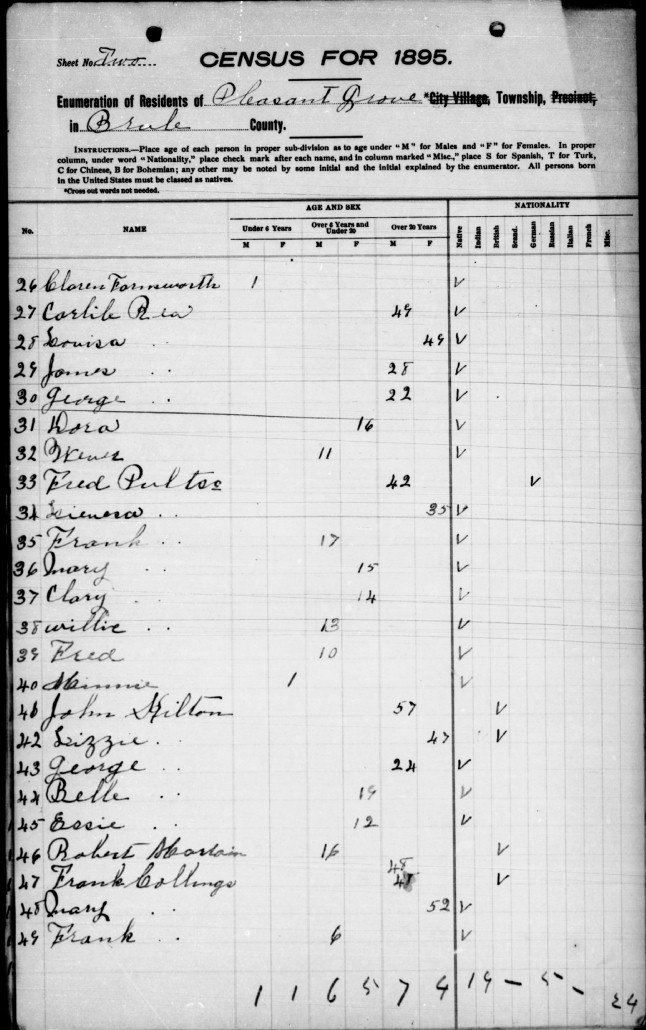 Sheet No. Two
CENSUS FOR 1895.
Enumeration of Residents of Pleasant Grove *City Village, Township, Precinct,
in Brule County.
INSTRUCTIONS.—Place age of each person in proper sub-division as to age under "M" for Males and "F" for Females. In proper
column, under word "Nationality," place check mark after each name, and in column marked "Misc.," place S for Spanish, T for Turk,
C for Chinese, B for Bohemian; any other may be noted by some initial and the initial explained by the enumerator. All persons born
in the United States must be classed as natives.
*Cross out words not needed.
AGE AND SEX NATIONALITY
No. NAME Under 6 Years Over 6 Years and Under 20 Over 20 Years Native Indian British Scand. German Russian Italian French Misc.
M F M F M F
26 Claren Farnsworth 1 ✓
27 Carlile Rea 49 ✓
28 Louisa " 49 ✓
29 James " 28 ✓
30 George " 22 ✓
31 Dora 16 ✓
32 11 ✓
33 Fred Pultse 42 ✓
34 " 35 ✓
35 Frank " 17 ✓
36 Mary " 15 ✓
37 Clary " 14 ✓
38 Willie " 13 ✓
39 Fred 10 ✓
40 Minnie 1 ✓
41 John Hilton 57 ✓
42 Lizzie " 47 ✓
43 George " 24 ✓
44 Belle " 19 ✓
45 Essie " 12 ✓
46 Robert 16 ✓
48
47 Frank Collings 48 ✓
48 Mary " 52 ✓
49 Frank " 6 ✓
1 1 6 5 7 4 19 – 5 – 24